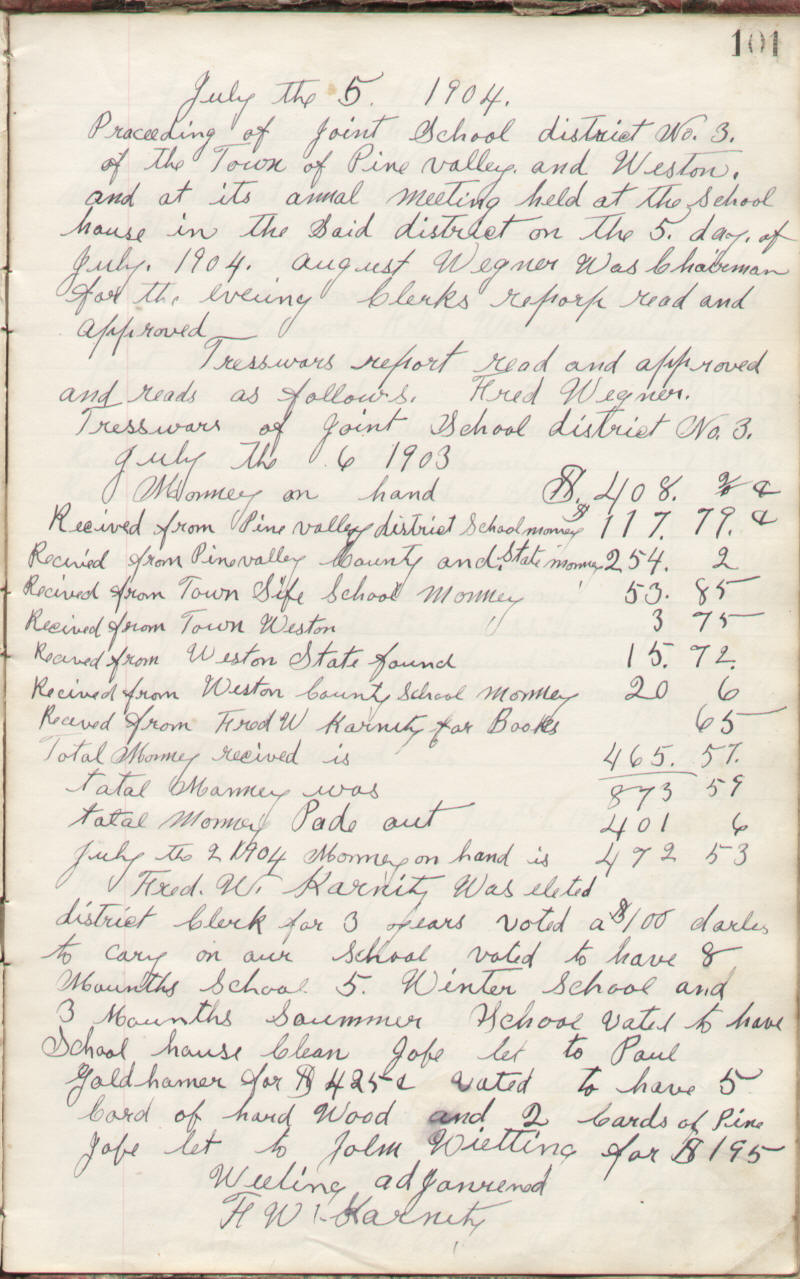 101
July the 5. 1904.
Proceeding of Joint School district No. 3.
of the Town of Pine valley. and Weston.
and at its annual Meeting held at the School
house in the Said district on the 5. day. of
July. 1904. august Wegner Was Chairman
for the evening Clerks reporp read and
approved
Tresswars report read and approved
and reads as follows. Fred Wegner.
Tresswars of Joint School district No. 3.
July the 6 1903
Monney on hand $. 408. ¢
Recived from Pine valley district School money $ 117. 79. ¢
Recivied from Pine valley County and State monney 254. 2
Recived from Town Sife School Monney 53. 85
Recived from Town Weston 3 75
Recived from Weston State found 15. 72.
Recived from Weston County School Monney 20 6
Recived from Fred W Karnitz for Books 65
Total Monney recived is 465. 57.
tatal Manney was 873 59
tatal Monney Pade out 401 6
July the 2 1904 Monney on hand is 472 53
Fred. W. Karnitz Was eleted
district Clerk for 3 years voted a $100 darles
to cary on our School voted to have 8
Mounths School 5. Winter School and
3 Mounths Soummer School Voted to have
School house Clean Jobe let to Paul
Goldhamer for $ 425 ¢ voted to have 5
Cord of hard Wood and 2 Cards of Pine
Jobe let to John Wietting for $ 195
Meeling adjonrened
F W. Karnitz